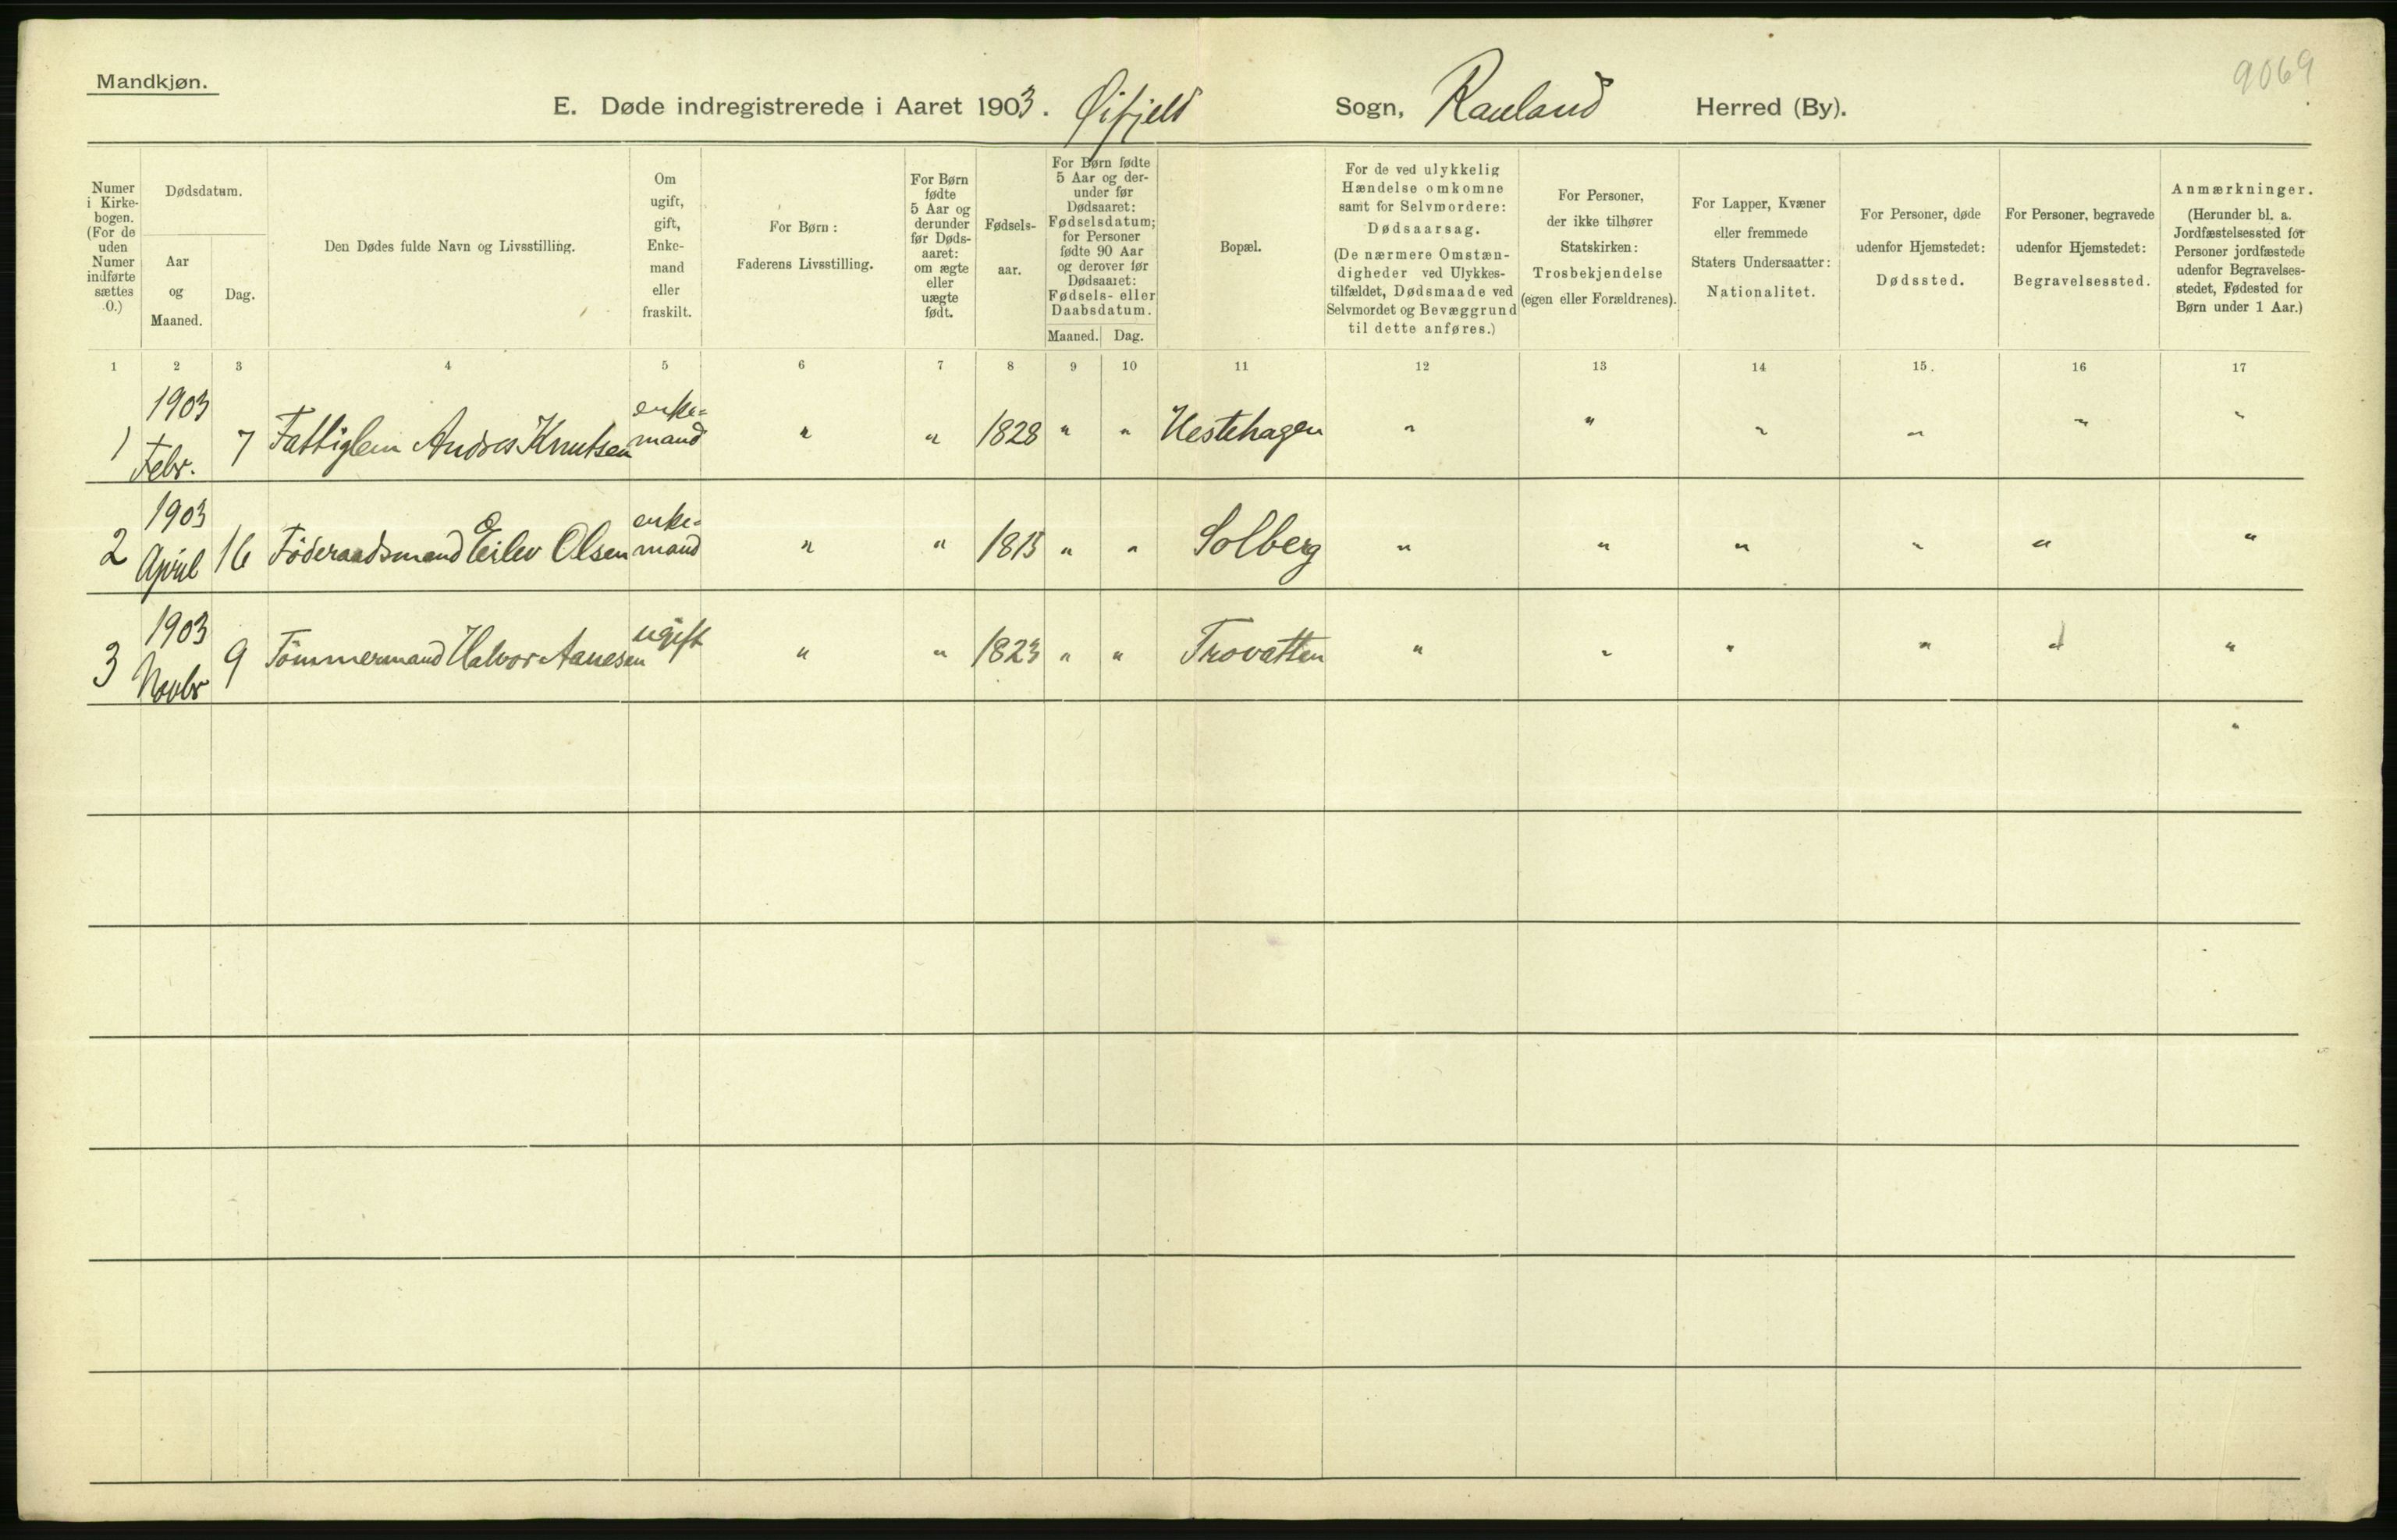 Mandkjøn.
9069
E. Døde indregistrerede i Aaret 1903. Øifjeld Sogn, Rauland Herred (By).
Numer i Kirkebogen. (For de uden Numer indførte sættes 0.)
Dødsdatum.
Aar og Maaned.
Dag.
Den Dødes fulde Navn og Livsstilling.
Om ugift, gift, Enkemand eller fraskilt.
For Børn: Faderens Livsstilling.
For Børn fødte 5 Aar og derunder før Dødsaaret: om ægte eller uægte født.
Fødselsaar.
For Børn fødte 5 Aar og derunder før Dødsaaret: Fødselsdatum; for Personer fødte 90 Aar og derover før Dødsaaret: Fødsels- eller Daabsdatum.
Maaned. Dag.
Bopæl.
For de ved ulykkelig Hændelse omkomne samt for Selvmordere: Dødsaarsag. (De nærmere Omstændigheder ved Ulykkestilfældet, Dødsmaade ved Selvmordet og Bevæggrund til dette anføres.)
For Personer, der ikke tilhører Statskirken: Trosbekjendelse (egen eller Forældrenes).
For Lapper, Kvæner eller fremmede Staters Undersaatter: Nationalitet.
For Personer, døde udenfor Hjemstedet: Dødssted.
For Personer, begravede udenfor Hjemstedet: Begravelsessted.
Anmærkninger. (Herunder bl. a. Jordfæstelsessted for Personer jordfæstede udenfor Begravelsesstedet, Fødested for Børn under 1 Aar.)
1 2 3 4 5 6 7 8 9 10 11 12 13 14 15. 16 17
1 1903 Febr. 7 Fattiglem Andres Knutsen enkemand " " 1828 " " Hestehagen " " " " " "
2 1903 April 16 Föderaadsmand Eilev Olsen enkemand " " 1813 " " Solberg " " " " " "
3 1903 Novbr 9 Tömmermand Halvor Aanesen ugift " " 1823 " " Trovatten " " " " " "
"